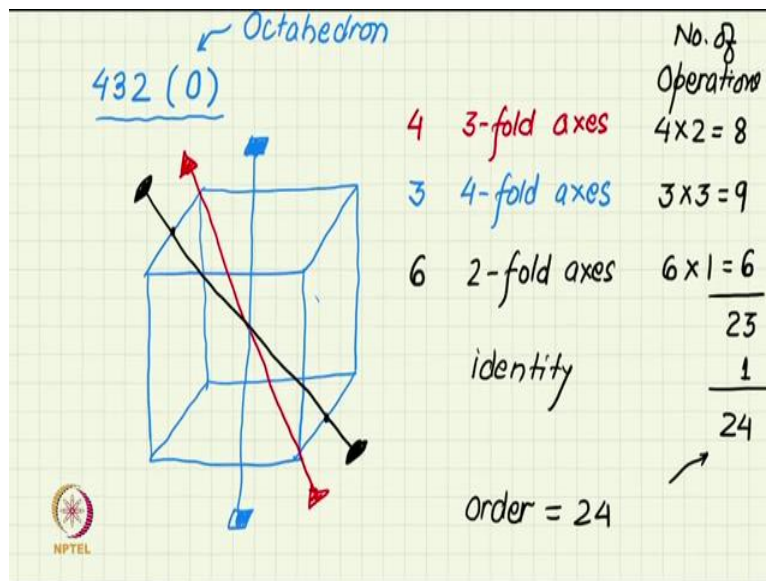 Octahedron
432 (O)
No. of
Operations
4 3-fold axes 4 x 2 = 8
3 4-fold axes 3 x 3 = 9
6 2-fold axes 6 x 1 = 6
23
identity 1
24
order = 24
NPTEL